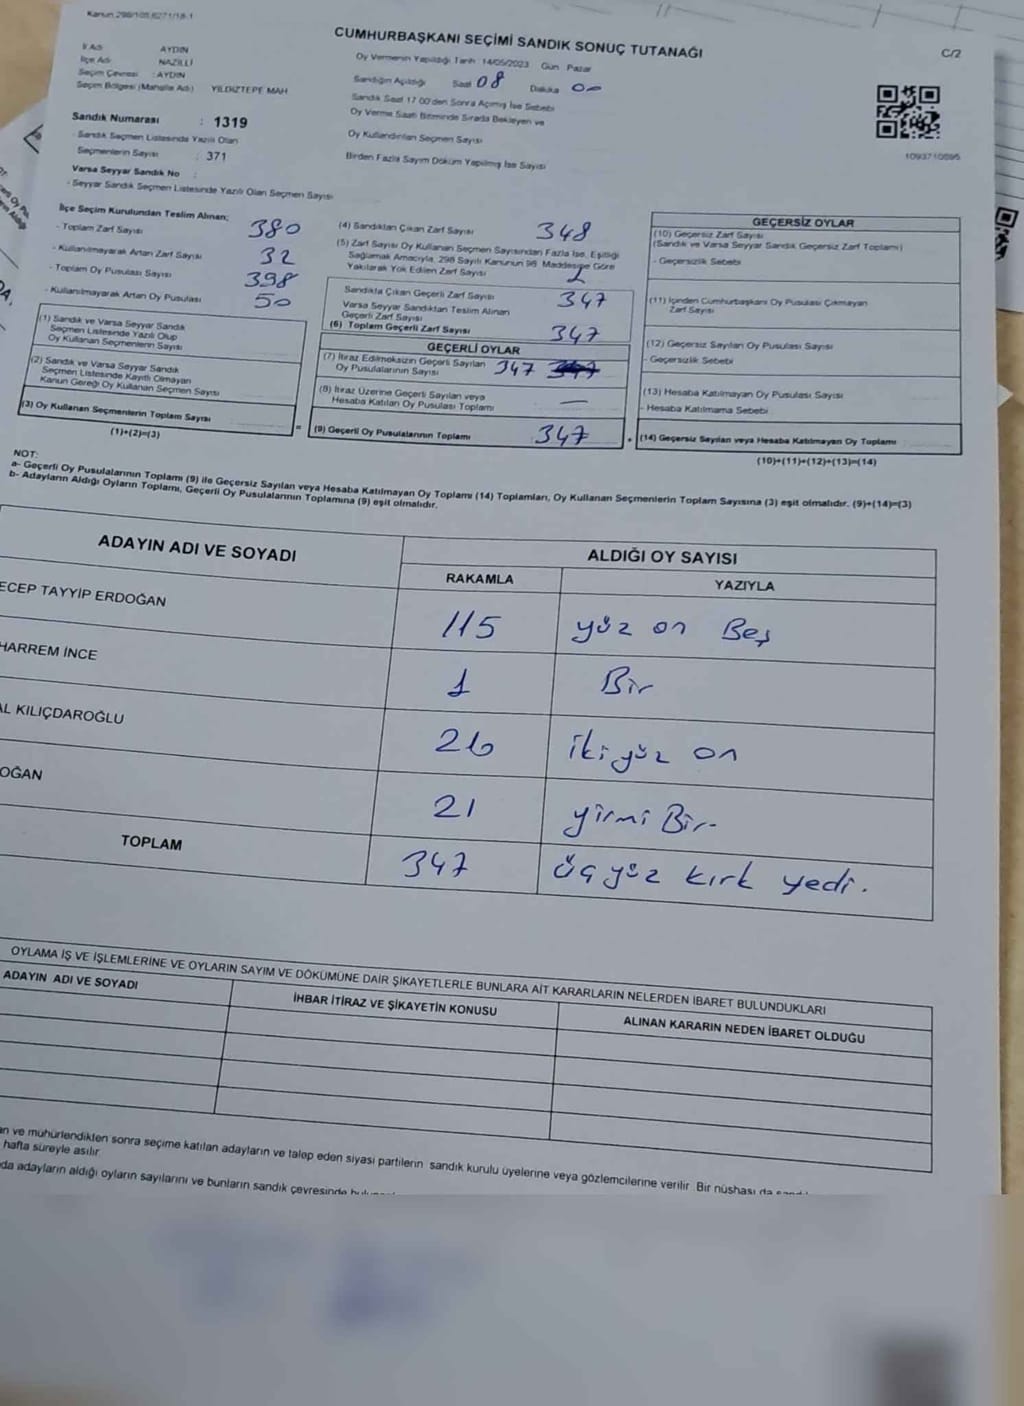 Kanun 298/105,6271/18-1
CUMHURBAŞKANI SEÇİMİ SANDIK SONUÇ TUTANAĞI
C/2
İl Adı AYDIN
İlçe Adı NAZİLLİ
Seçim Çevresi : AYDIN
Seçim Bölgesi (Mahalle Adı) YILDIZTEPE MAH
Oy Vermenin Yapıldığı Tarih 14/05/2023 Gün Pazar
Sandığın Açıldığı Saat 08 Dakika 00
Sandık Saat 17 00'den Sonra Açılmış İse Sebebi
Oy Verme Saati Bitiminde Sırada Bekleyen ve
Oy Kullandırılan Seçmen Sayısı
Birden Fazla Sayım Döküm Yapılmış İse Sayısı
1093710895
Sandık Numarası : 1319
- Sandık Seçmen Listesinde Yazılı Olan
Seçmenlerin Sayısı : 371
Varsa Seyyar Sandık No :
- Seyyar Sandık Seçmen Listesinde Yazılı Olan Seçmen Sayısı
İlçe Seçim Kurulundan Teslim Alınan;
- Toplam Zarf Sayısı 380
- Kullanılmayarak Artan Zarf Sayısı 32
- Toplam Oy Pusulası Sayısı 398
- Kullanılmayarak Artan Oy Pusulası 50
(1) Sandık ve Varsa Seyyar Sandık
Seçmen Listesinde Yazılı Olup
Oy Kullanan Seçmenlerin Sayısı
(2) Sandık ve Varsa Seyyar Sandık
Seçmen Listesinde Kayıtlı Olmayan
Kanun Gereği Oy Kullanan Seçmen Sayısı
(3) Oy Kullanan Seçmenlerin Toplam Sayısı
(1)+(2)=(3)
(4) Sandıktan Çıkan Zarf Sayısı 348
(5) Zarf Sayısı Oy Kullanan Seçmen Sayısından Fazla İse, Eşitliği
Sağlamak Amacıyla, 298 Sayılı Kanunun 98. Maddesine Göre
Yakılarak Yok Edilen Zarf Sayısı 1
Sandıkta Çıkan Geçerli Zarf Sayısı 347
Varsa Seyyar Sandıktan Teslim Alınan
Geçerli Zarf Sayısı
(6) Toplam Geçerli Zarf Sayısı 347
GEÇERLİ OYLAR
(7) İtiraz Edilmeksizin Geçerli Sayılan
Oy Pusulalarının Sayısı 347
(8) İtiraz Üzerine Geçerli Sayılan veya
Hesaba Katılan Oy Pusulası Toplamı —
(9) Geçerli Oy Pusulalarının Toplamı 347
GEÇERSİZ OYLAR
(10) Geçersiz Zarf Sayısı
(Sandık ve Varsa Seyyar Sandık Geçersiz Zarf Toplamı)
- Geçersizlik Sebebi
(11) İçinden Cumhurbaşkanı Oy Pusulası Çıkmayan
Zarf Sayısı
(12) Geçersiz Sayılan Oy Pusulası Sayısı
- Geçersizlik Sebebi
(13) Hesaba Katılmayan Oy Pusulası Sayısı
- Hesaba Katılmama Sebebi
(14) Geçersiz Sayılan veya Hesaba Katılmayan Oy Toplamı
(10)+(11)+(12)+(13)=(14)
NOT:
a- Geçerli Oy Pusulalarının Toplamı (9) ile Geçersiz Sayılan veya Hesaba Katılmayan Oy Toplamı (14) Toplamları, Oy Kullanan Seçmenlerin Toplam Sayısına (3) eşit olmalıdır. (9)+(14)=(3)
b- Adayların Aldığı Oyların Toplamı, Geçerli Oy Pusulalarının Toplamına (9) eşit olmalıdır.
ADAYIN ADI VE SOYADI ALDIĞI OY SAYISI
RAKAMLA YAZIYLA
ECEP TAYYİP ERDOĞAN 115 yüz on Beş
HARREM İNCE 1 Bir
AL KILIÇDAROĞLU 210 iki yüz on
OĞAN 21 yirmi Bir
TOPLAM 347 üç yüz kırk yedi.
OYLAMA İŞ VE İŞLEMLERİNE VE OYLARIN SAYIM VE DÖKÜMÜNE DAİR ŞİKAYETLERLE BUNLARA AİT KARARLARIN NELERDEN İBARET BULUNDUKLARI
ADAYIN ADI VE SOYADI İHBAR İTİRAZ VE ŞİKAYETİN KONUSU ALINAN KARARIN NEDEN İBARET OLDUĞU
an ve mühürlendikten sonra seçime katılan adayların ve talep eden siyasi partilerin sandık kurulu üyelerine veya gözlemcilerine verilir. Bir nüshası da
hafta süreyle asılır.
da adayların aldığı oyların sayılarını ve bunların sandık çevresinde